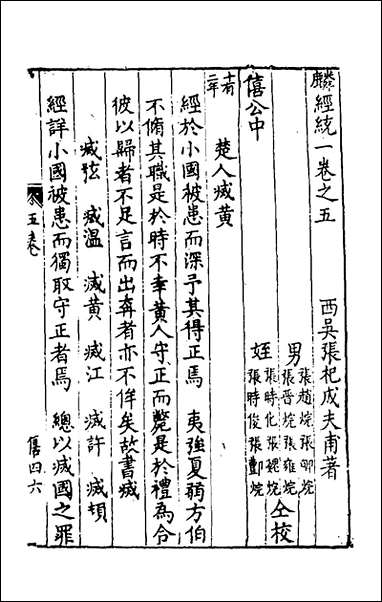 麟經統一卷之五
西吳張杞成夫甫著
男張趙烷張聊烷
張晉烷張雍烷
姪張時化張魏烷
張時俊張酆烷
仝校
僖公中
十有二年
楚人滅黃
經於小國被患而深予其得正焉　夷強夏弱方伯
不脩其職是於時不幸黃人守正而斃是於禮為合
彼以歸者不足言而出奔者亦不侔矣故書滅
滅弦　滅溫　滅黃　滅江　滅許　滅頓
經詳小國被患而獨取守正者焉　總以滅國之罪
五卷
僖四六